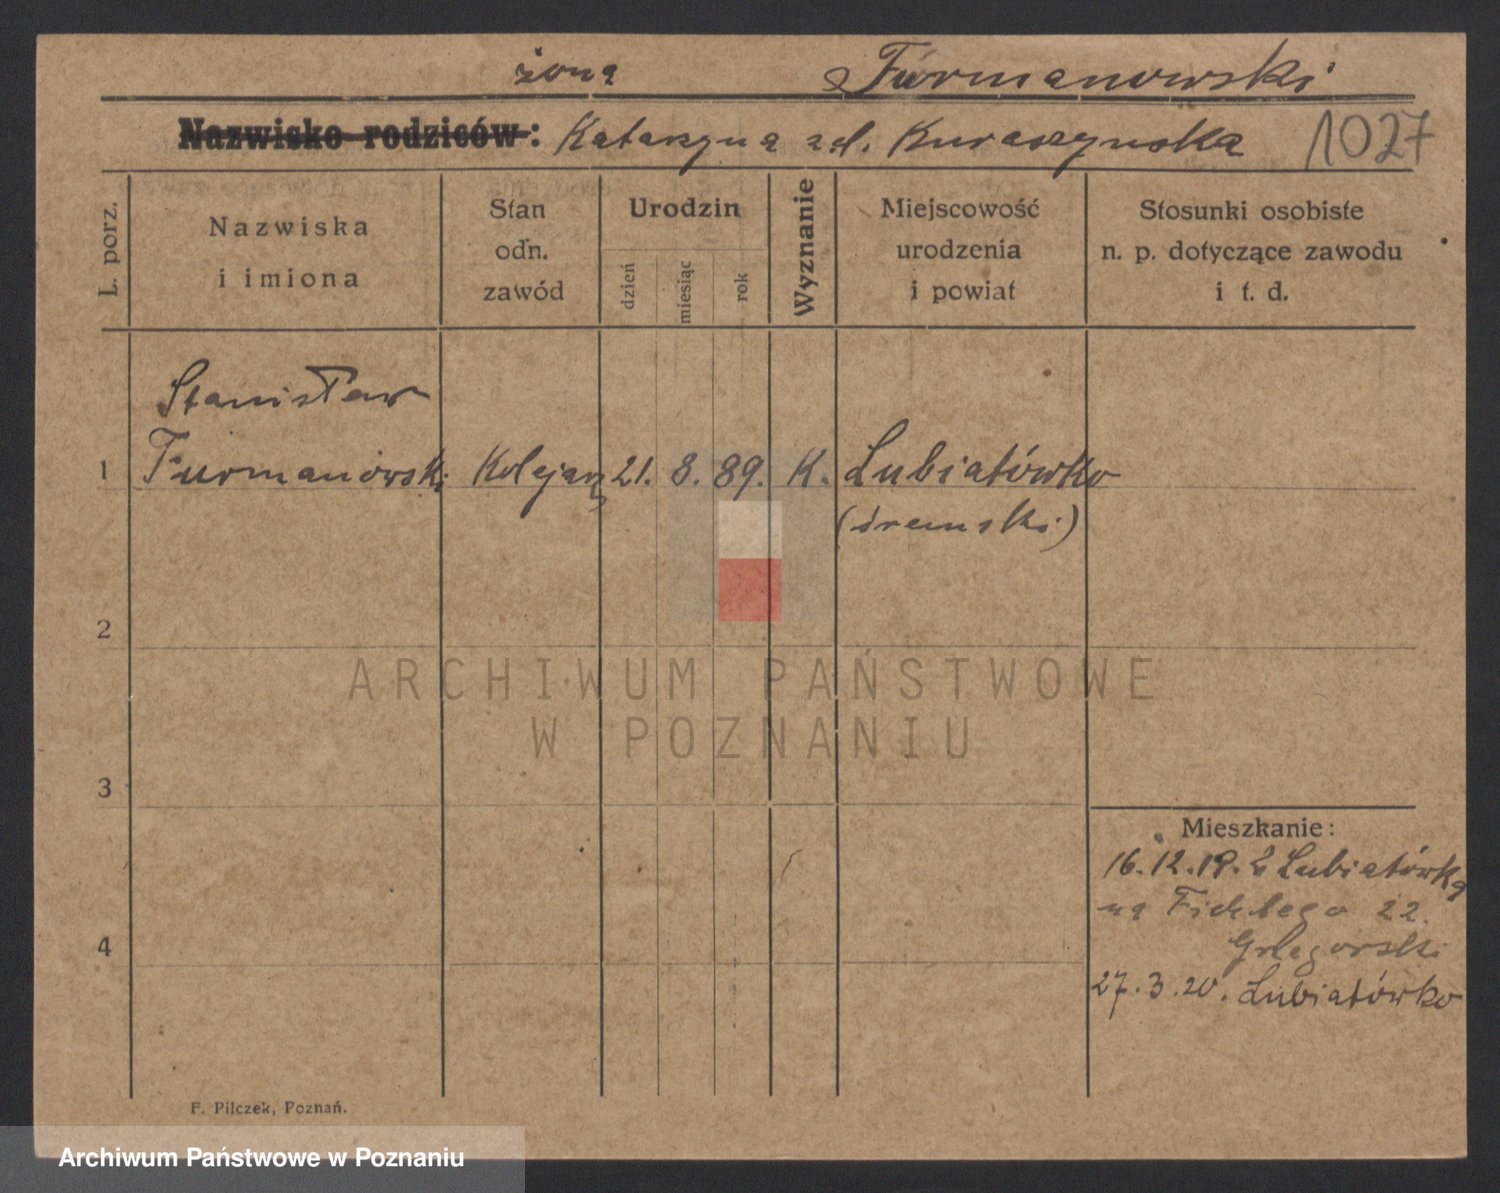 żona Furmanowski
Nazwisko rodziców: Katarzyna zd. Kuraszyńska 1027
L. porz.
Nazwiska
i imiona
Stan
odn.
zawód
Urodzin
dzień
miesiąc
rok
Wyznanie
Miejscowość
urodzenia
i powiat
Stosunki osobiste
n. p. dotyczące zawodu
i t. d.
Stanisław
1 Furmanowski Kolejarz 21. 8. 89. K. Lubiatówko
(śremski)
2
ARCHIWUM PAŃSTWOWE
W POZNANIU
3
Mieszkanie:
16.12.19. z Lubiatówka
na 22.
4
27.3.20. Lubiatówko
F. Pilczek, Poznań.
Archiwum Państwowe w Poznaniu